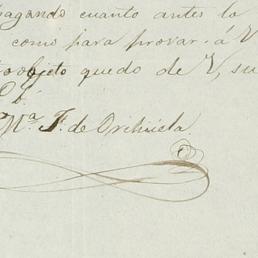 pagando cuanto antes lo
como para provar á V
objeto quedo de V, su
Mª. F. de Orihuela.